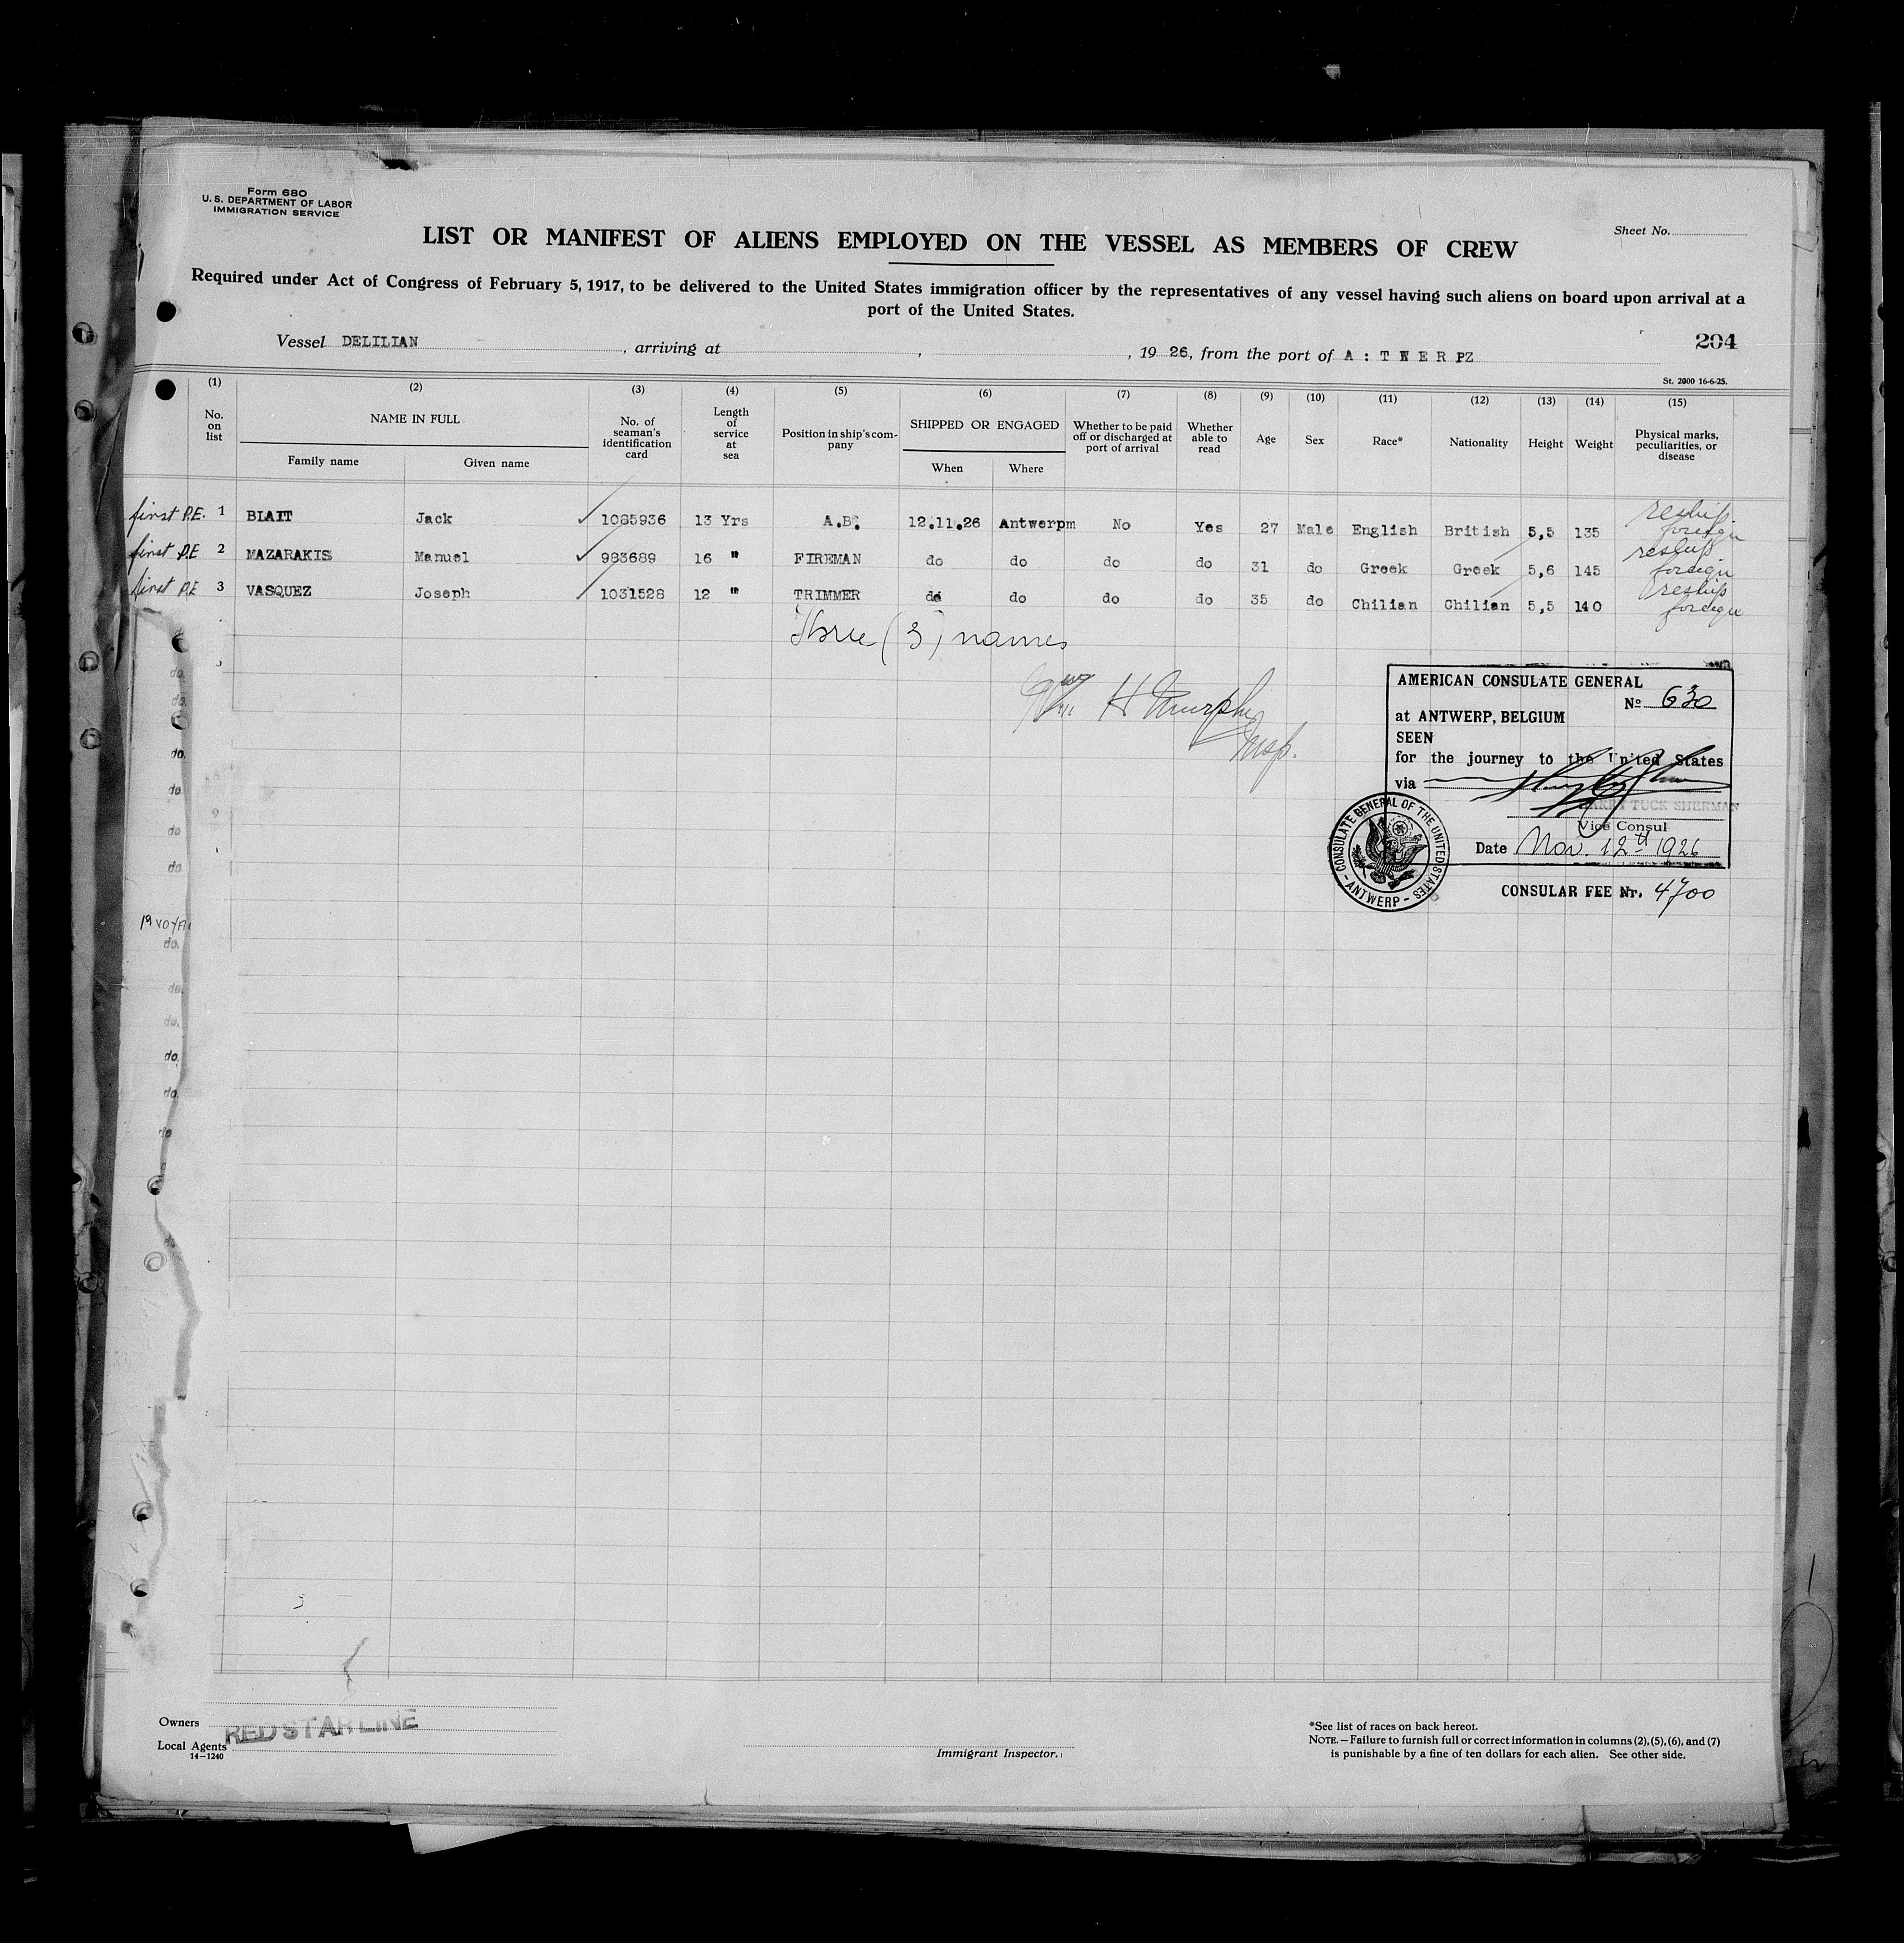 Form 680
U. S. DEPARTMENT OF LABOR
IMMIGRATION SERVICE
Sheet No.
LIST OR MANIFEST OF ALIENS EMPLOYED ON THE VESSEL AS MEMBERS OF CREW
Required under Act of Congress of February 5, 1917, to be delivered to the United States immigration officer by the representatives of any vessel having such aliens on board upon arrival at a
port of the United States.
204
Vessel DELILIAN, arriving at , , 19 26, from the port of A : T W E R PZ
St. 2000 16-6-25.
(1) (2) (3) (4) (5) (6) (7) (8) (9) (10) (11) (12) (13) (14) (15)
No. on list
NAME IN FULL
Family name Given name
No. of seaman's identification card
Length of service at sea
Position in ship's company
SHIPPED OR ENGAGED
When Where
Whether to be paid off or discharged at port of arrival
Whether able to read
Age
Sex
Race*
Nationality
Height
Weight
Physical marks, peculiarities, or disease
first P.E. 1 BLAIT Jack 1085936 13 Yrs A.B. 12.11.26 Antwerpm No Yes 27 Male English British 5,5 135 reship foreign
first P.E 2 MAZARAKIS Manuel 983689 16 " FIREMAN do do do do 31 do Greek Greek 5,6 145 reship foreign
first P.E 3 VASQUEZ Joseph 1031528 12 " TRIMMER do do do do 35 do Chilian Chilian 5,5 140 reship foreign
Three (3) names
Wm H Murphy
Insp.
AMERICAN CONSULATE GENERAL
No 630
at ANTWERP, BELGIUM
SEEN
for the journey to the United States
via
HARRY TUCK SHERMAN
Vice Consul
Date Nov. 12th 1926
CONSULATE GENERAL OF THE UNITED STATES - ANTWERP -
CONSULAR FEE Nr. 4700
do.
do.
do.
do.
do
do.
19 VOYA
do.
do.
do.
do.
do.
do
Owners
RED STAR LINE
Local Agents
14—1240
Immigrant Inspector.
*See list of races on back hereof.
NOTE.—Failure to furnish full or correct information in columns (2), (5), (6), and (7)
is punishable by a fine of ten dollars for each alien. See other side.